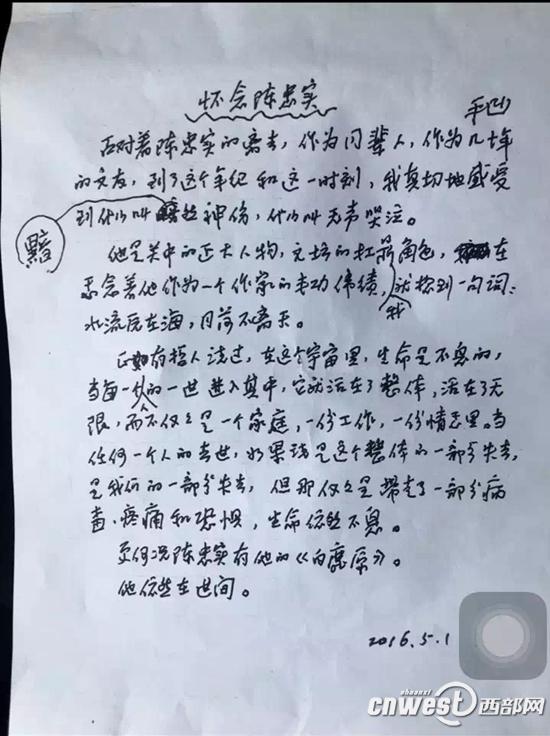 怀念陈忠实
平凹
面对着陈忠实的离去，作为同辈人，作为几十年
的文友，到了这个年纪和这一时刻，我真切地感受
到什么叫黯然神伤，什么叫无声哭泣。
他是关中的正大人物，文坛的扛鼎角色，在
思念着他作为一个作家的丰功伟绩，我想到一句词：
水流原在海，月落不离天。
正如有哲人说过，在这个宇宙里，生命是不息的，
当每一个人的一世进入其中，它就活在了整体，活在了无
限，而不仅仅是一个家庭，一份工作，一份情意里。当
任何一个人的去世，如果说是这个整体的一部分失去，
是我们的一部分失去，但那仅仅是带走了一部分病
毒、疼痛和恐惧，生命依然不息。
更何况陈忠实有他的《白鹿原》。
他依然在世间。
2016.5.1
shaanxi
cnwest西部网